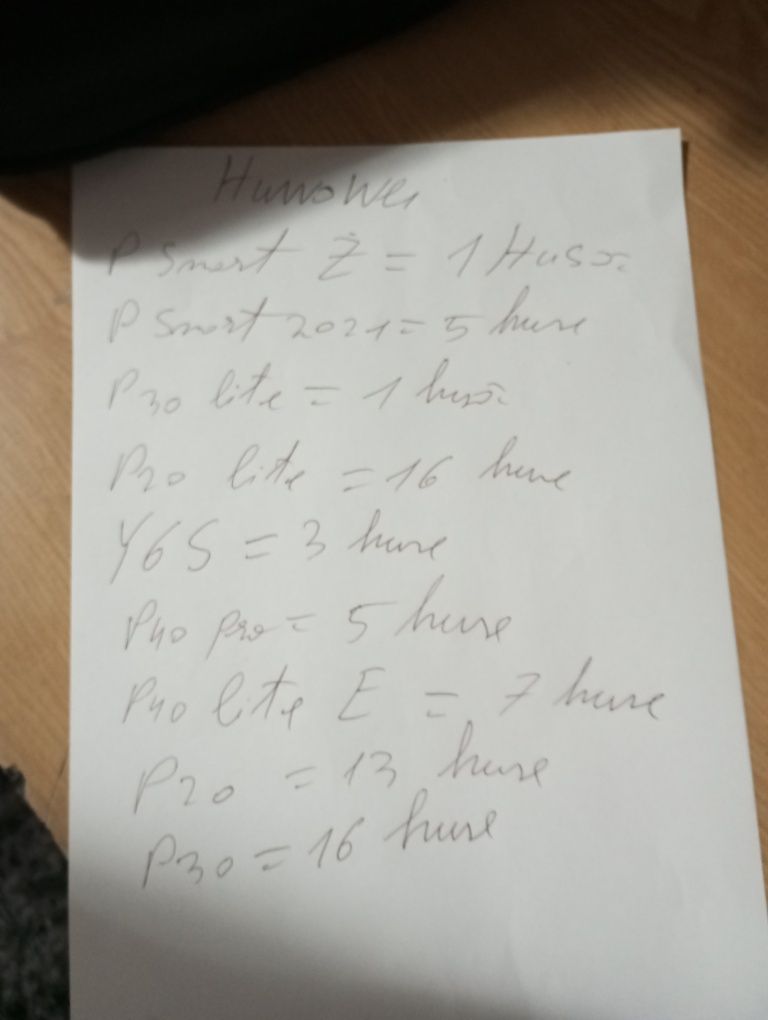 Huwawei
P Smart Z = 1 Husă
P Smart 2021 = 5 huse
P30 lite = 1 husă
P20 lite = 16 huse
Y6S = 3 huse
P40 pro = 5 huse
P40 lite E = 7 huse
P20 = 13 huse
P30 = 16 huse